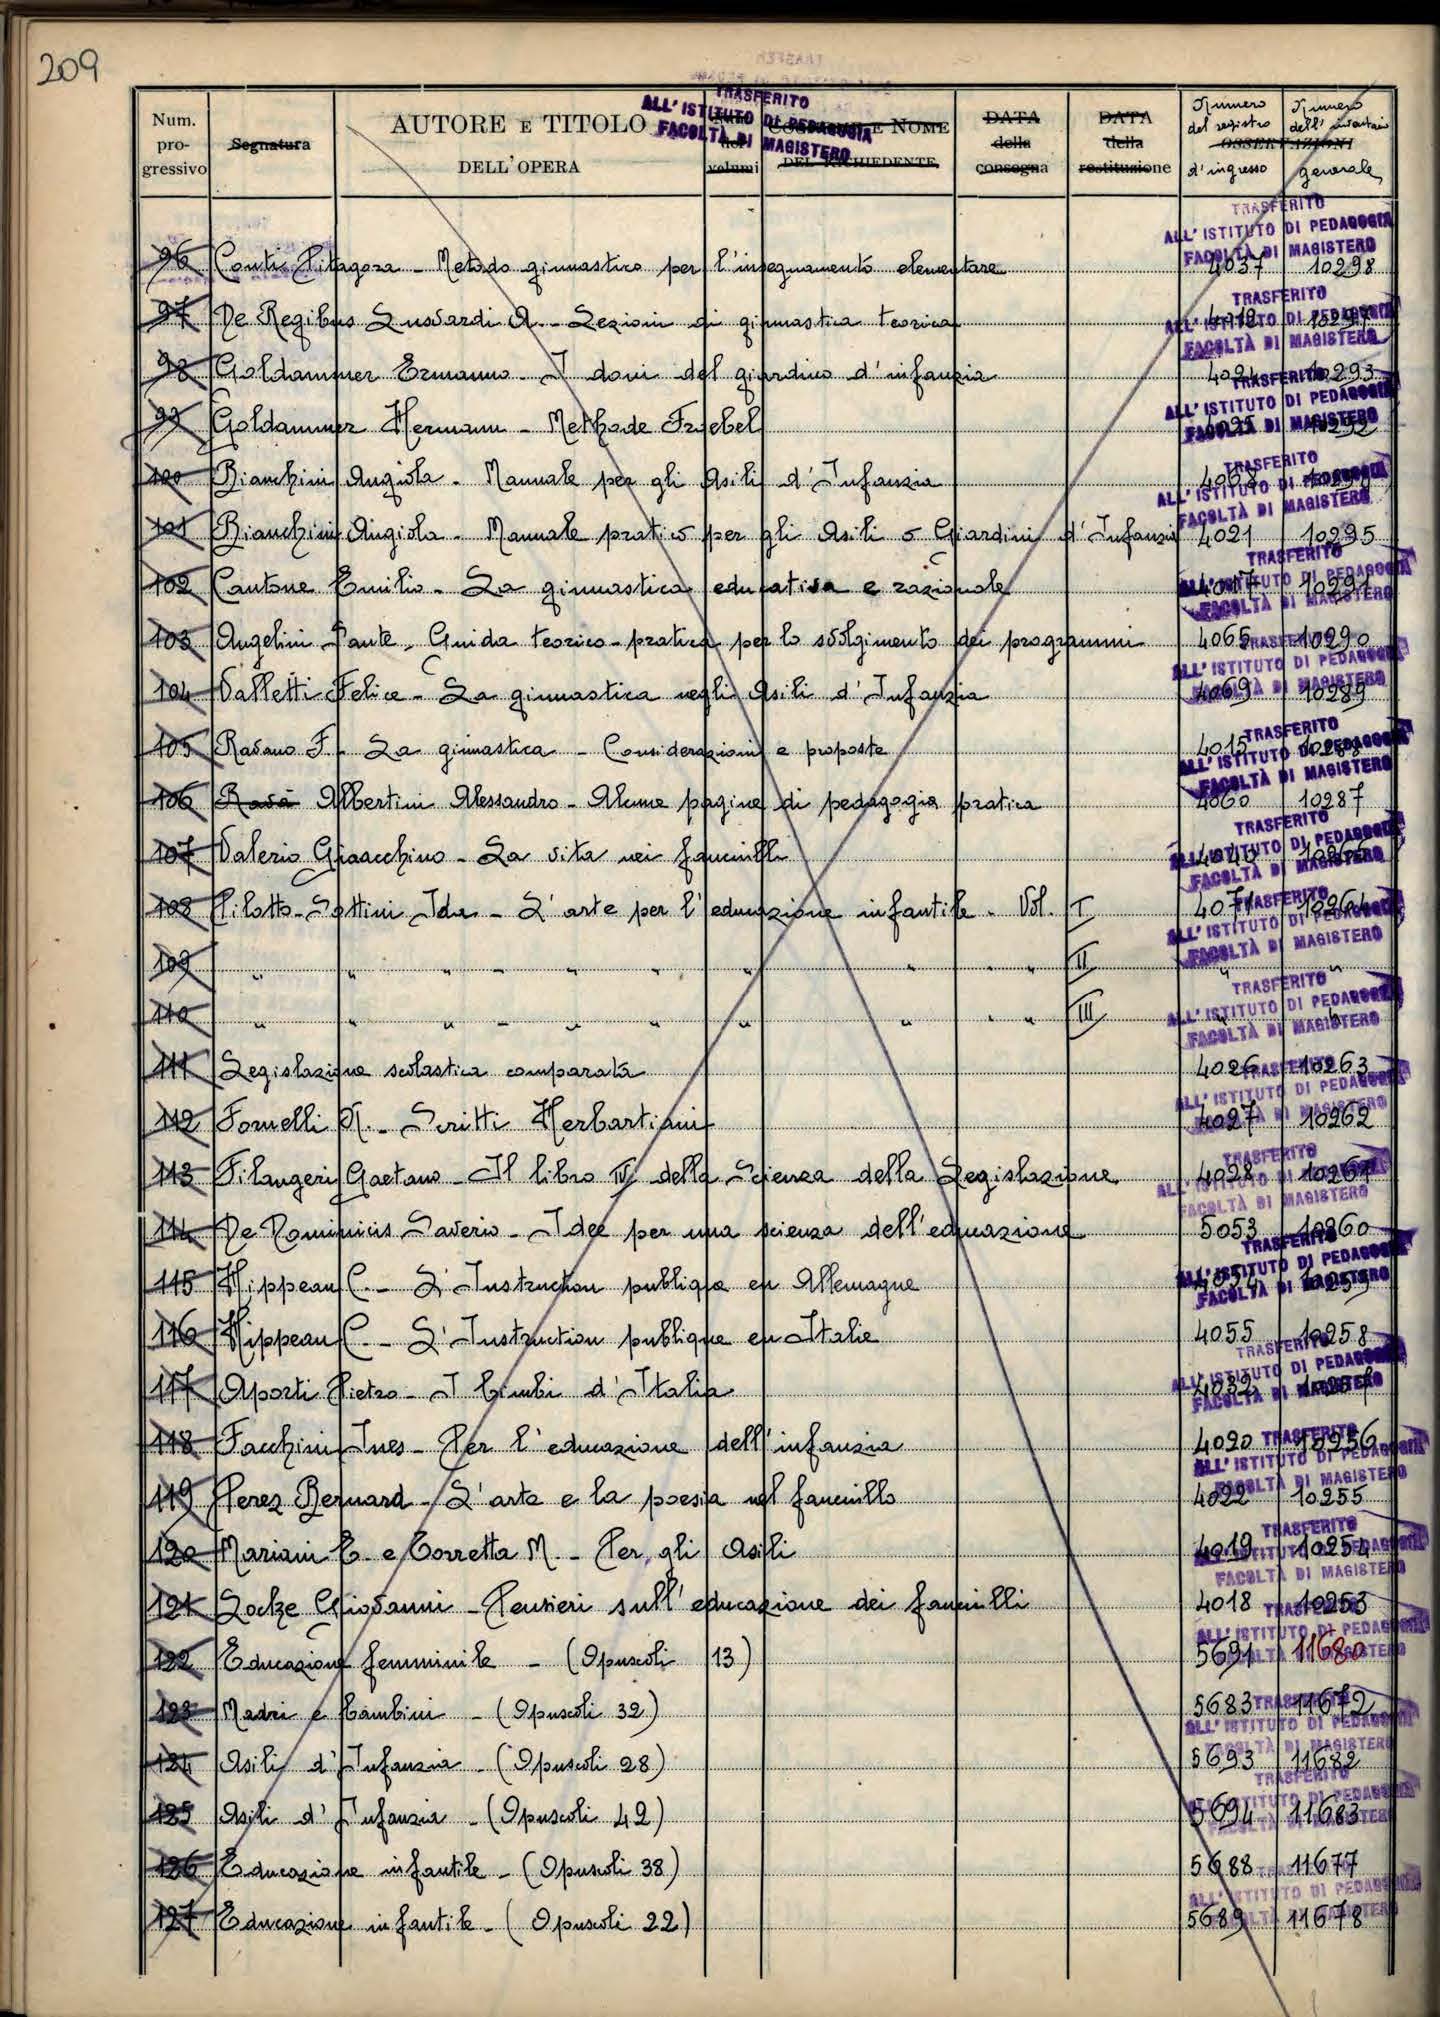 209
Num. progressivo Segnatura AUTORE E TITOLO DELL'OPERA volumi COGNOME E NOME DEL RICHIEDENTE DATA della consegna DATA della restituzione OSSERVAZIONI Numero del registro d'ingresso Numero dell'inventario generale
TRASFERITO
ALL'ISTITUTO DI PEDAGOGIA
FACOLTÀ DI MAGISTERO
96 Conti Pitagora - Metodo ginnastico per l'insegnamento elementare 4037 10298
97 De Regibus Lusvardi A. - Lezioni di ginnastica teorica
98 Goldammer Ermanno - I doni del giardino d'infanzia 10293
99 Goldammer Hermann - Methode Froebel
100 Bianchini Angiola - Manuale per gli Asili d'Infanzia 4068
101 Bianchini Angiola - Manuale pratico per gli Asili o Giardini d'Infanzia 4021 10295
102 Cantone Emilio - La ginnastica educativa e razionale 4017 10291
103 Angelini Sante, Guida teorico-pratica per lo svolgimento dei programmi 4065 10290
104 Valletti Felice - La ginnastica negli Asili d'Infanzia 4069 10289
105 Ravano F. - La ginnastica - Considerazioni e proposte 4015
106 Ravà Albertini Alessandro - Alcune pagine di pedagogia pratica 4060 10287
107 Valerio Gioacchino - La vita nei fanciulli
108 Pilotto-Sottini Ida - L'arte per l'educazione infantile. Vol. I 4071 10264
109 " " " - " " " " " " II " "
110 " " " - " " " " " " III " "
111 Legislazione scolastica comparata 4026 10263
112 Fornelli N. - Scritti Herbartiani 4027 10262
113 Filangeri Gaetano - Il libro IV della Scienza della Legislazione 4028 10261
114 De Dominicis Saverio - Idee per una scienza dell'educazione 5053 10260
115 Hippeau C. - L'Instruction publique en Allemagne 4054 10259
116 Hippeau C. - L'Instruction publique en Italie 4055 10258
117 Aporti Pietro - I bimbi d'Italia 4032
118 Facchini Ines - Per l'educazione dell'infanzia 4020 10256
119 Perez Bernard - L'arte e la poesia nel fanciullo 4022 10255
120 Mariani E. e Torretta M. - Per gli Asili 4019 10254
121 Locke Giovanni - Pensieri sull'educazione dei fanciulli 4018 10253
122 Educazione femminile - (Opuscoli 13) 5691 11680
123 Madri e bambini - (Opuscoli 32) 5683 11672
124 Asili d'Infanzia - (Opuscoli 28) 5693 11682
125 Asili d'Infanzia - (Opuscoli 42) 5694 11683
126 Educazione infantile - (Opuscoli 38) 5688 11677
127 Educazione infantile - (Opuscoli 22) 5689 11678